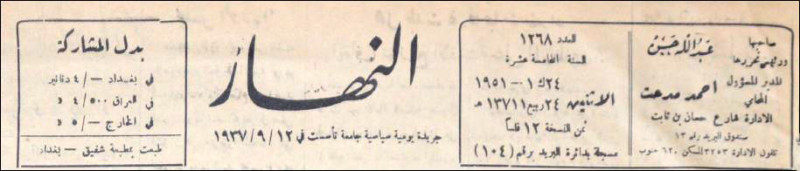 صاحبها
ورئيس تحريرها
عبد الله حسين
المدير المسؤول
المحامي
احمد مدحت
الادارة شارع حسان بن ثابت
صندوق البريد رقم ١٣
تلفون الادارة ٣٢٥٣ السكن ٦٢٠ جنوب
العدد ١٢٦٨
السنة الخامسة عشرة
الاثنين
٢٤ ك١ - ١٩٥١
٢٤ ربيع١ ١٣٧١ هـ
ثمن النسخة ١٢ فلساً
مسجلة بدائرة البريد برقم (١٠٤)
النهار
جريدة يومية سياسية جامعة تأسست في ١٢/٩/١٩٣٧
بدل المشاركة
في بغداد -/٤ دنانير
في العراق ٤/٥٠٠ د
في الخارج -/٥ د
طبعت بمطبعة شفيق - بغداد